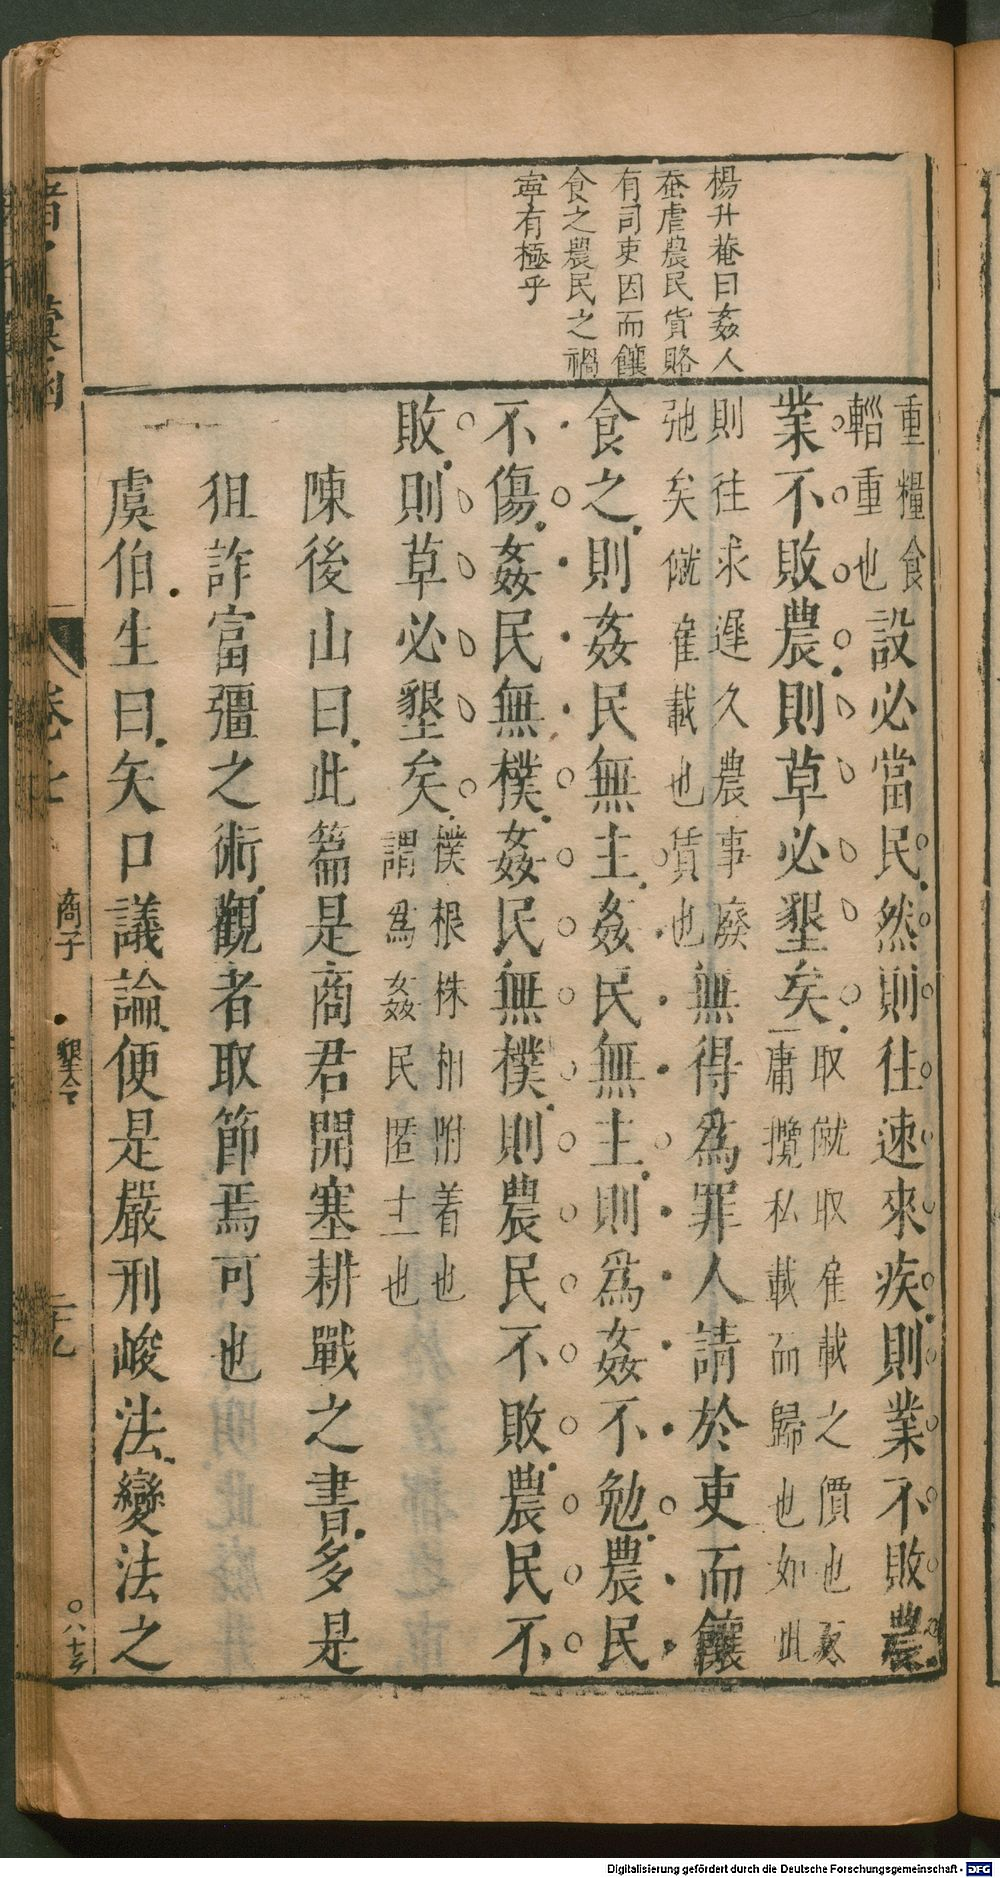 楊升菴曰姦人
蚕虐農民貨賂
有司吏因而饟
食之農民之禍
寧有極乎
重糧食
輜重也
設必當民然則往速來疾則業不敗農
業不敗農則草必墾矣
取僦取雇載之價也
庸攬私載而歸也如此
則往求遲久農事廢
弛矣僦雇載也賃也
無得爲罪人請於吏而饟
食之則姦民無主姦民無主則爲姦不勉農民
不傷姦民無樸姦民無樸則農民不敗農民不
敗則草必墾矣
樸根株相附着也
謂爲姦民匿土也
陳後山曰此篇是商君開塞耕戰之書多是
狙詐富彊之術觀者取節焉可也
虞伯生曰矢口議論便是嚴刑峻法變法之
商子
墾令
二十九
Digitalisierung gefördert durch die Deutsche Forschungsgemeinschaft - DFG